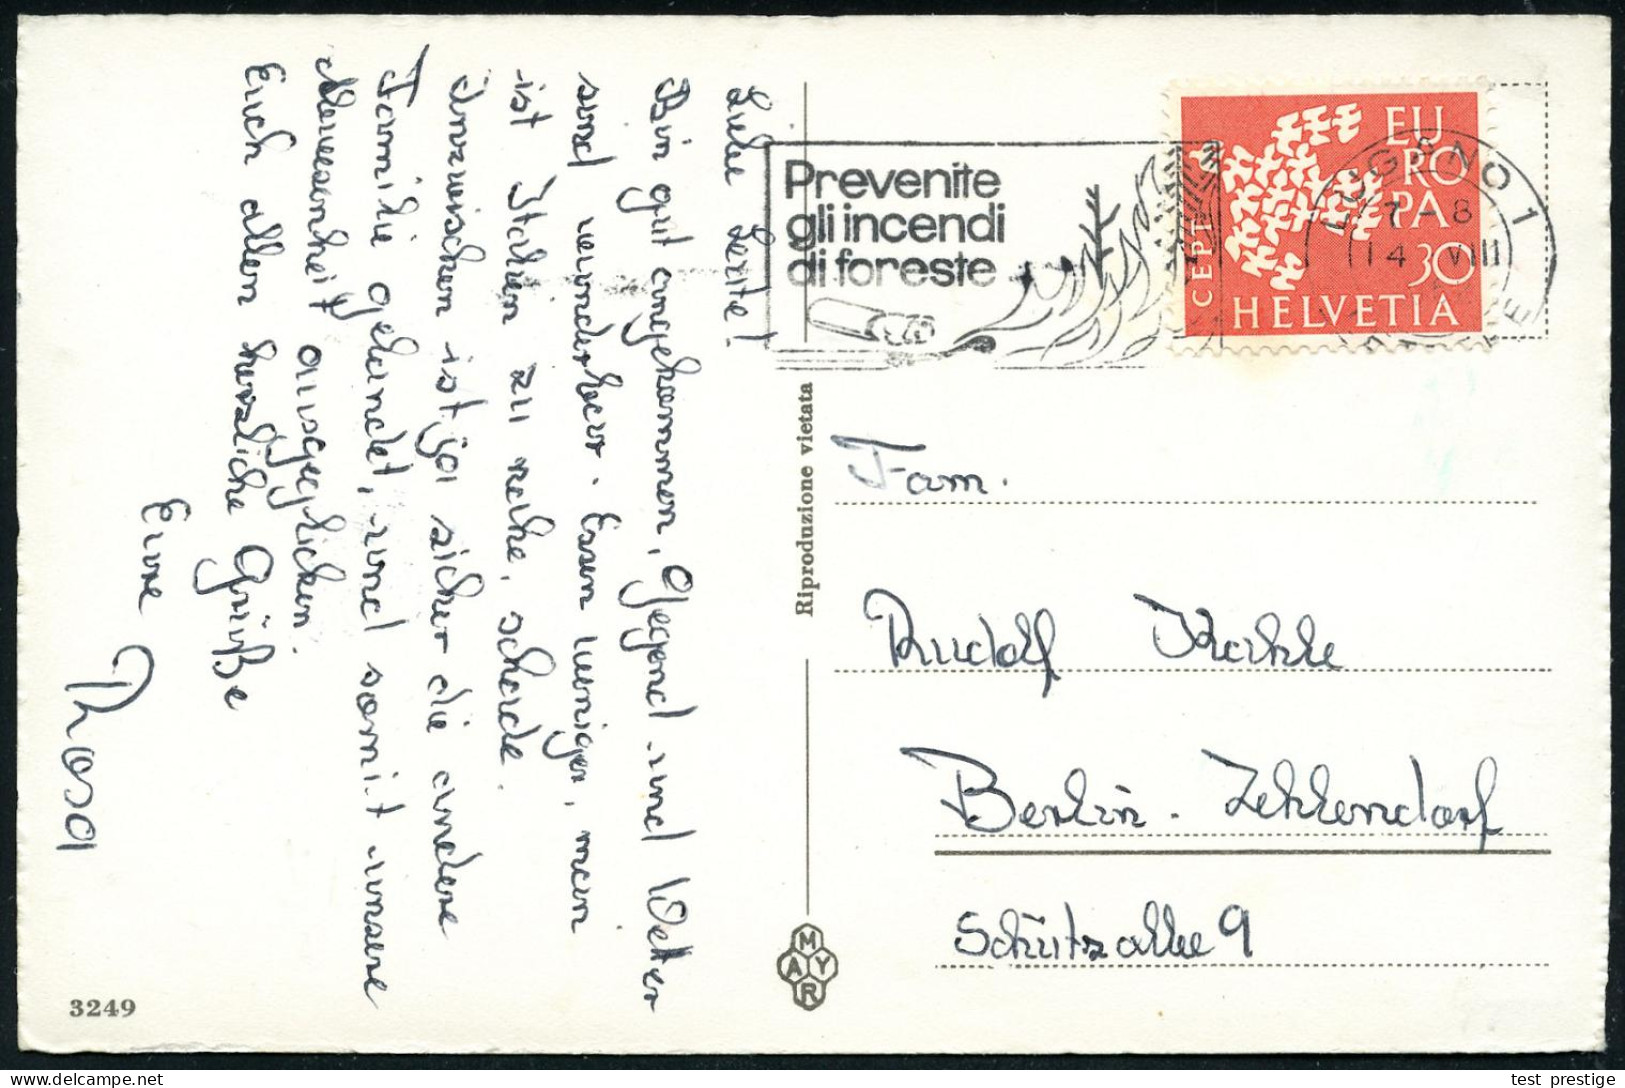 Liebe Leute!
Bin gut angekommen, Gegend und Wetter
sind wunderbar. Essen weniger, man
ist Italien zu nahe, schade.
Inzwischen ist ja sicher die andere
Familie gelandet, und somit unsere
ausgeglichen.
Euch allen herzliche Grüße
Eure
Prevenite
gli incendi
di foreste
EU
RO
PA
CEPT
30
HELVETIA
LUGANO 1
7-8
14 VIII
Riproduzione vietata
Fam.
Rudolf
Berlin-Zehlendorf
Schützallee 9
MAYR
3249
test_prestige